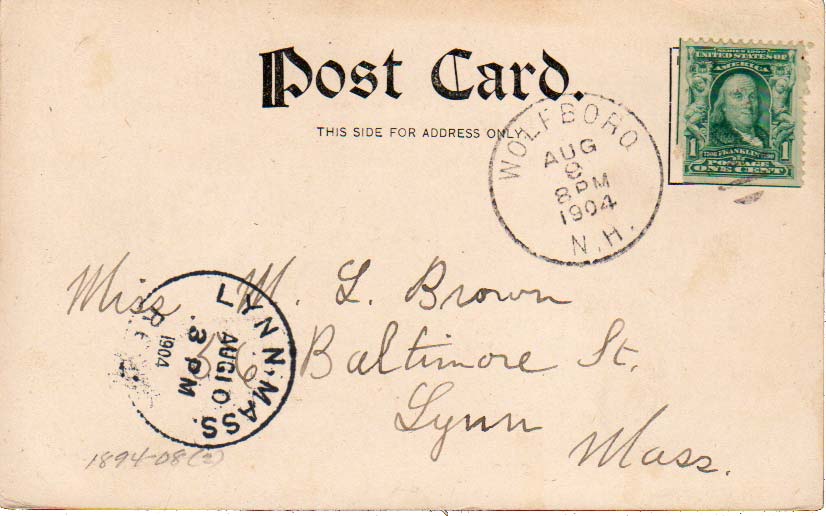 Post Card.
THIS SIDE FOR ADDRESS ONLY.
SERIES 1902
UNITED STATES OF
AMERICA
1 FRANKLIN 1
POSTAGE
ONE CENT
WOLFBORO
AUG
8PM
1904
N.H.
Miss M. L. Brown
56 Baltimore St.
Lynn
Mass.
LYNN, MASS
AUG 10
3 PM
1904
1894-08(2)